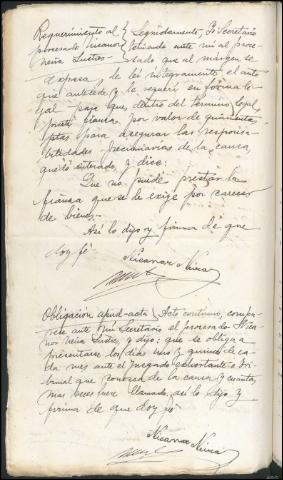 Requerimiento al } Seguidamente, Yo Secretario
procesado Nicanor } estando ante mi al proce-
Neira Sustos } sado que al margen se
expresa, le leí integramente el auto
que antecede, y le requerí en forma le-
gal para que dentro del termino legal
preste fianza por valor de quinientas
ptas para asegurar las responsa-
bilidades pecuniarias de la causa,
quedó enterado, y dice:
Que no puede prestar la
fianza que se le exige por carecer
de bienes.
Así lo dijo y firma de que
doy fé
Nicanor Neira
Obligación apud-acta } Acto continuo, compa-
rece ante mi Secretario el procesado Nica-
nor Neira Sustos, y dijo: que se obliga a
presentarse los dias uno y quince de ca-
da mes ante el Juzgado exhortante o Tri-
bunal que conozca de la causa y cuantas
mas veces fuere llamado, así lo dijo y
firma de que doy fé
Nicanor Neira